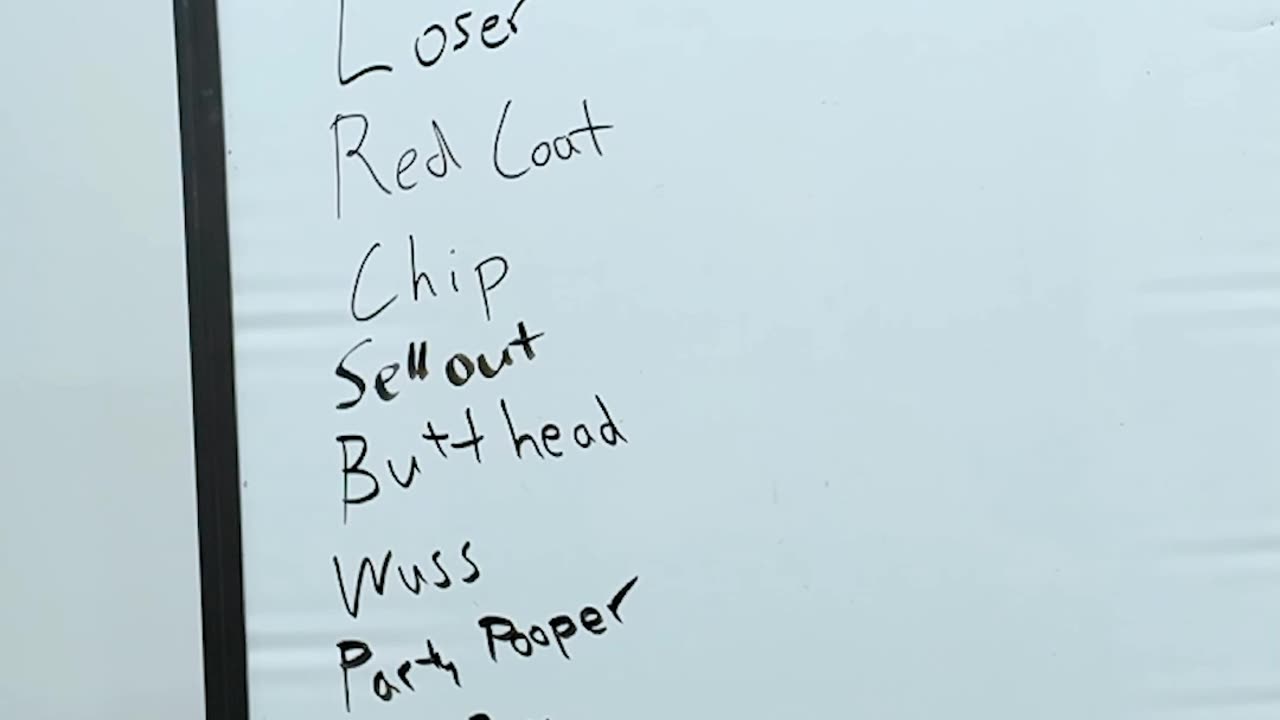 Loser
Red Coat
Chip
Sellout
Butt head
Wuss
Party Pooper